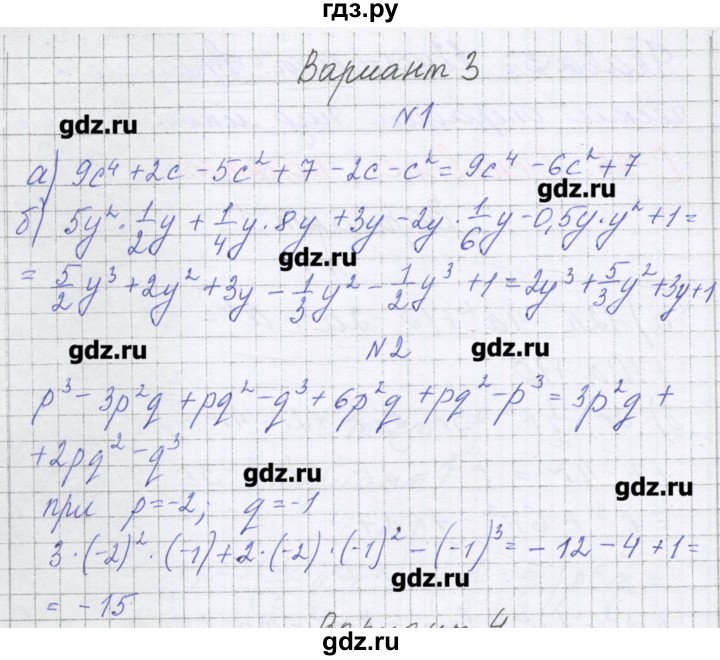 гдз.ру
Вариант 3
gdz.ru
№1
а) 9c⁴ + 2c - 5c² + 7 - 2c - c² = 9c⁴ - 6c² + 7
gdz.ru
б) 5y² · 1/2 y + 1/4 y · 8y + 3y - 2y · 1/6 y - 0,5y · y² + 1 =
gdz.ru
= 5/2 y³ + 2y² + 3y - 1/3 y² - 1/2 y³ + 1 = 2y³ + 5/3 y² + 3y + 1
gdz.ru №2 gdz.ru
p³ - 3p²q + pq² - q³ + 6p²q + pq² - p³ = 3p²q +
+ 2pq² - q³
gdz.ru
gdz.ru
при p = -2; q = -1
3 · (-2)² · (-1) + 2 · (-2) · (-1)² - (-1)³ = -12 - 4 + 1 =
gdz.ru
= -15
Вариант 4
gdz.ru